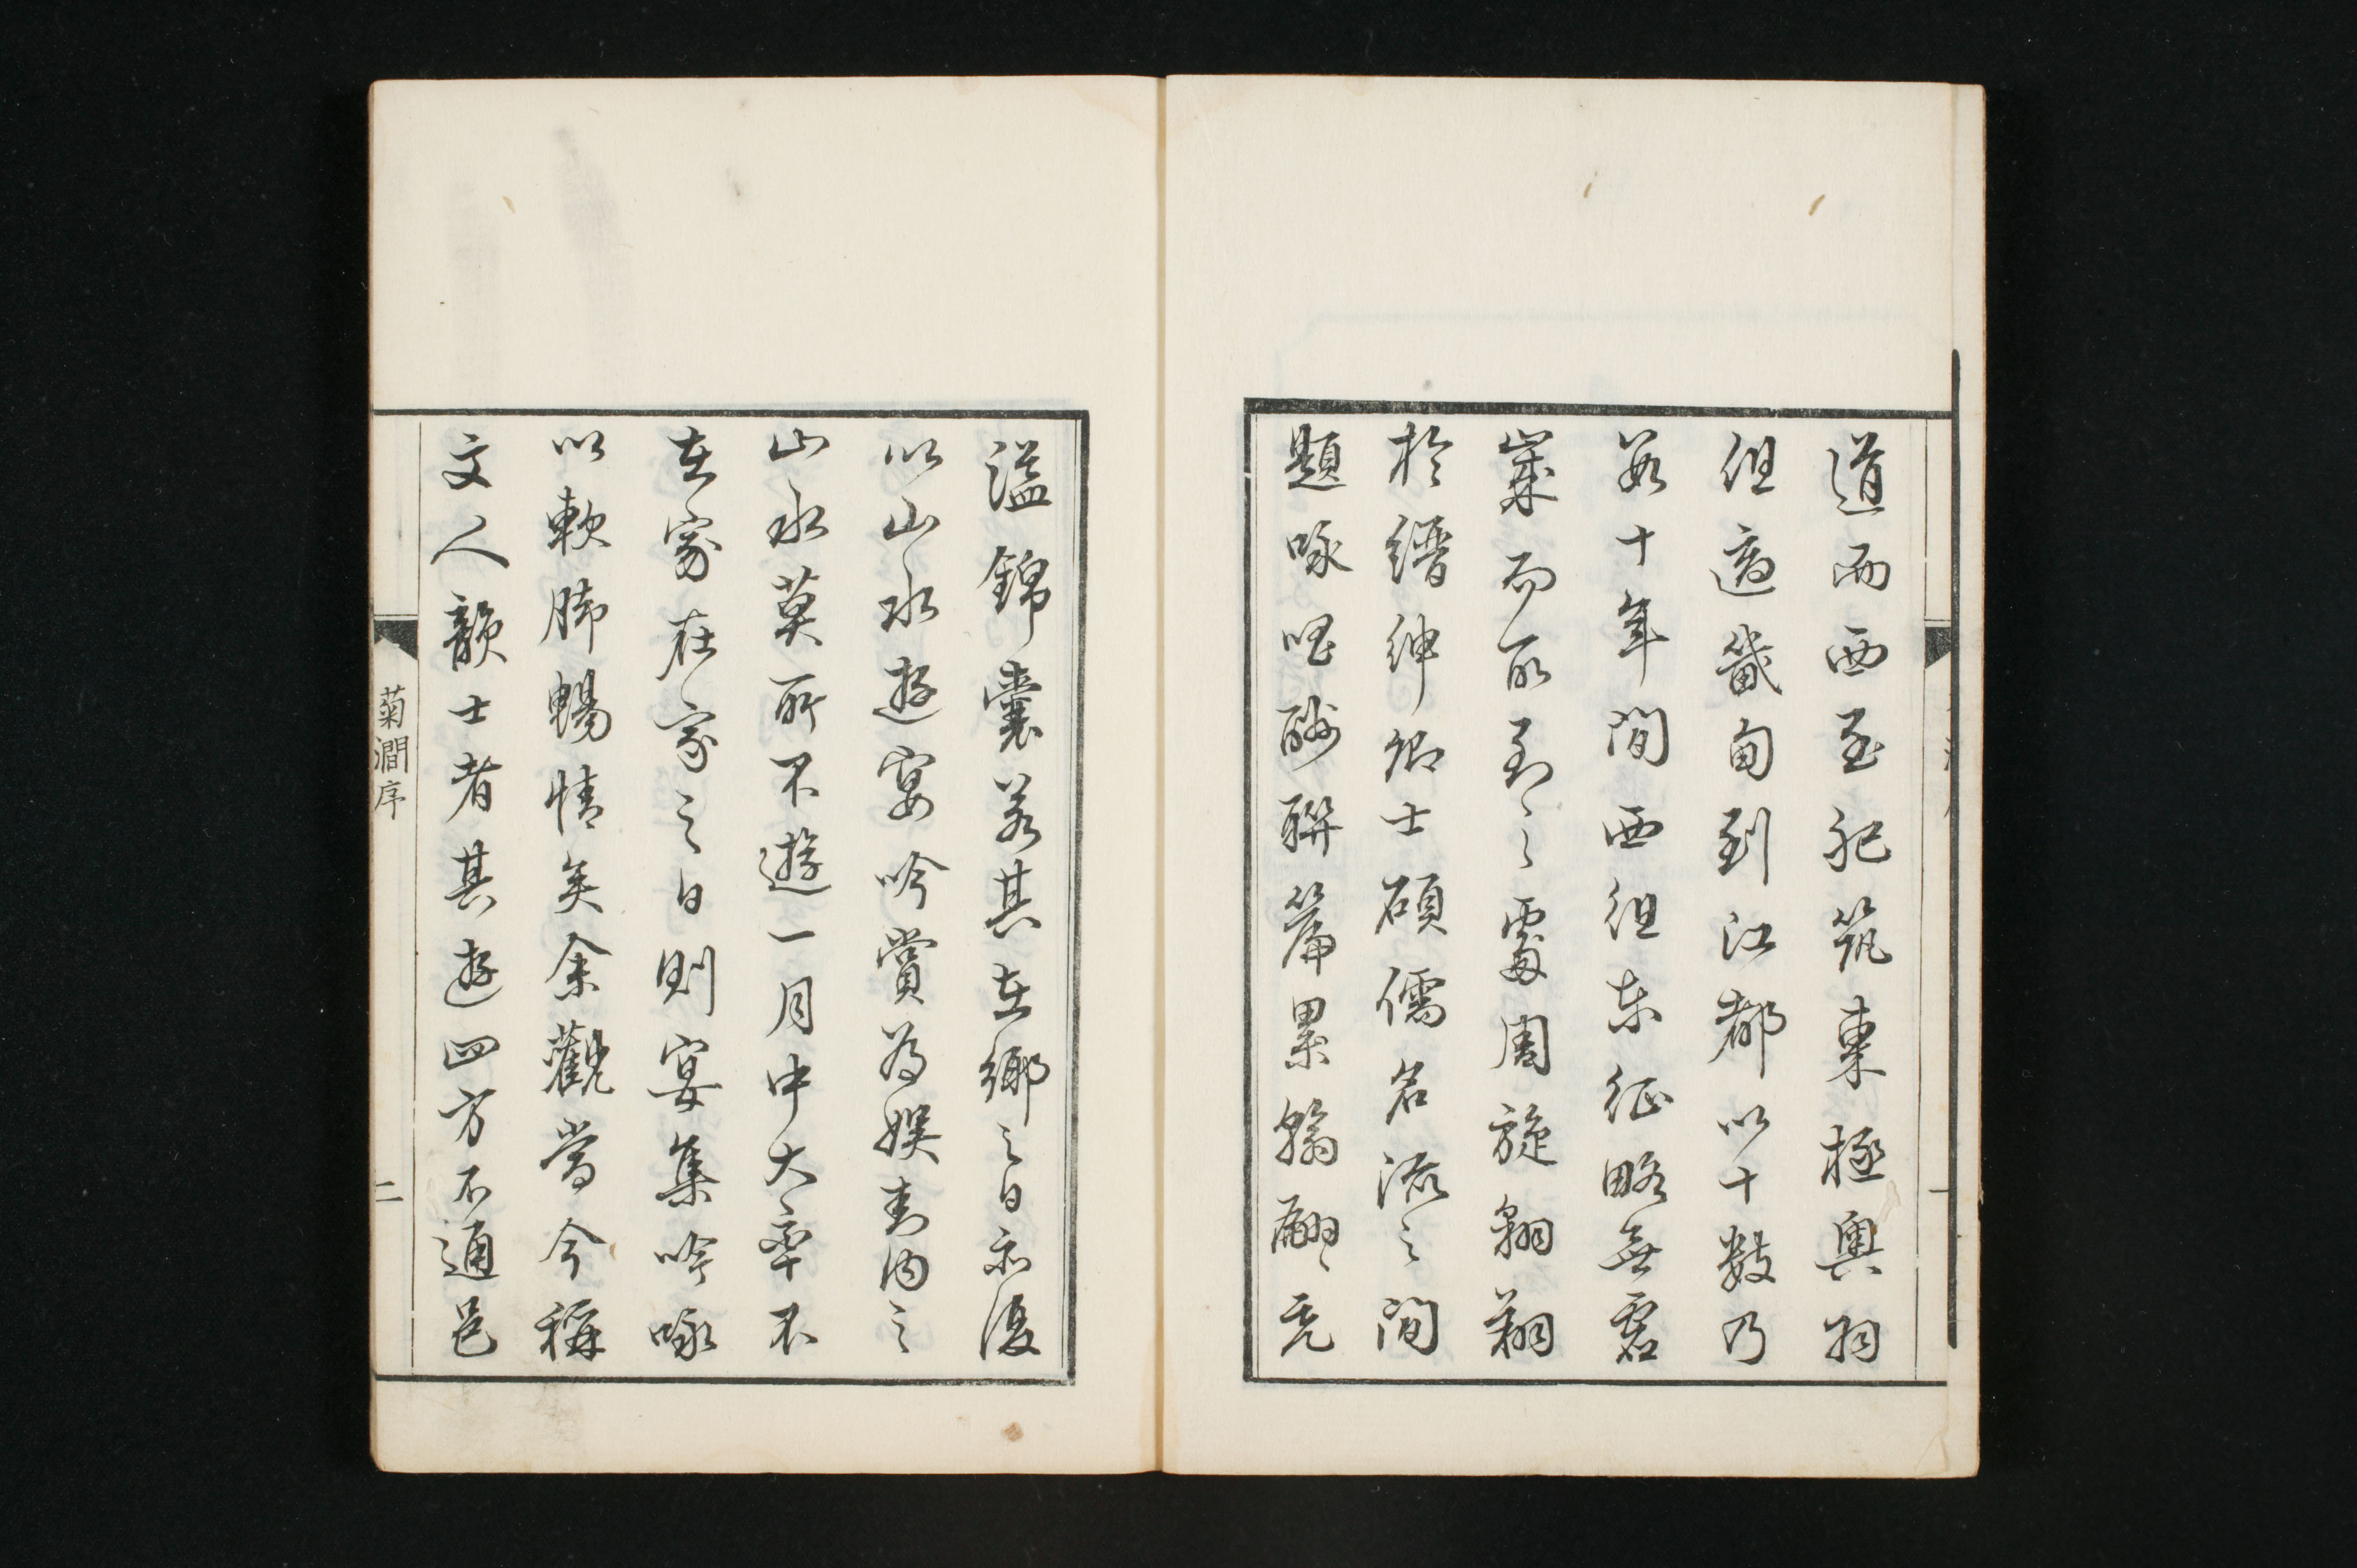 道而西至肥筑東極奧羽
徂適畿甸到江都以十數乃
數十年間西徂東征略無虛
歲而所到之處周旋翱翔
於縉紳卿士碩儒名流之間
題咏唱酬聯篇累翰翩々充
溢錦囊若其在鄉之日亦復
以山水遊宴吟賞為娛封內之
山水莫所不遊一月中大率不
在家在家之日則宴集吟咏
以軟脚暢情矣余觀當今稱
文人韻士者其遊四方不通邑
菊澗序
二